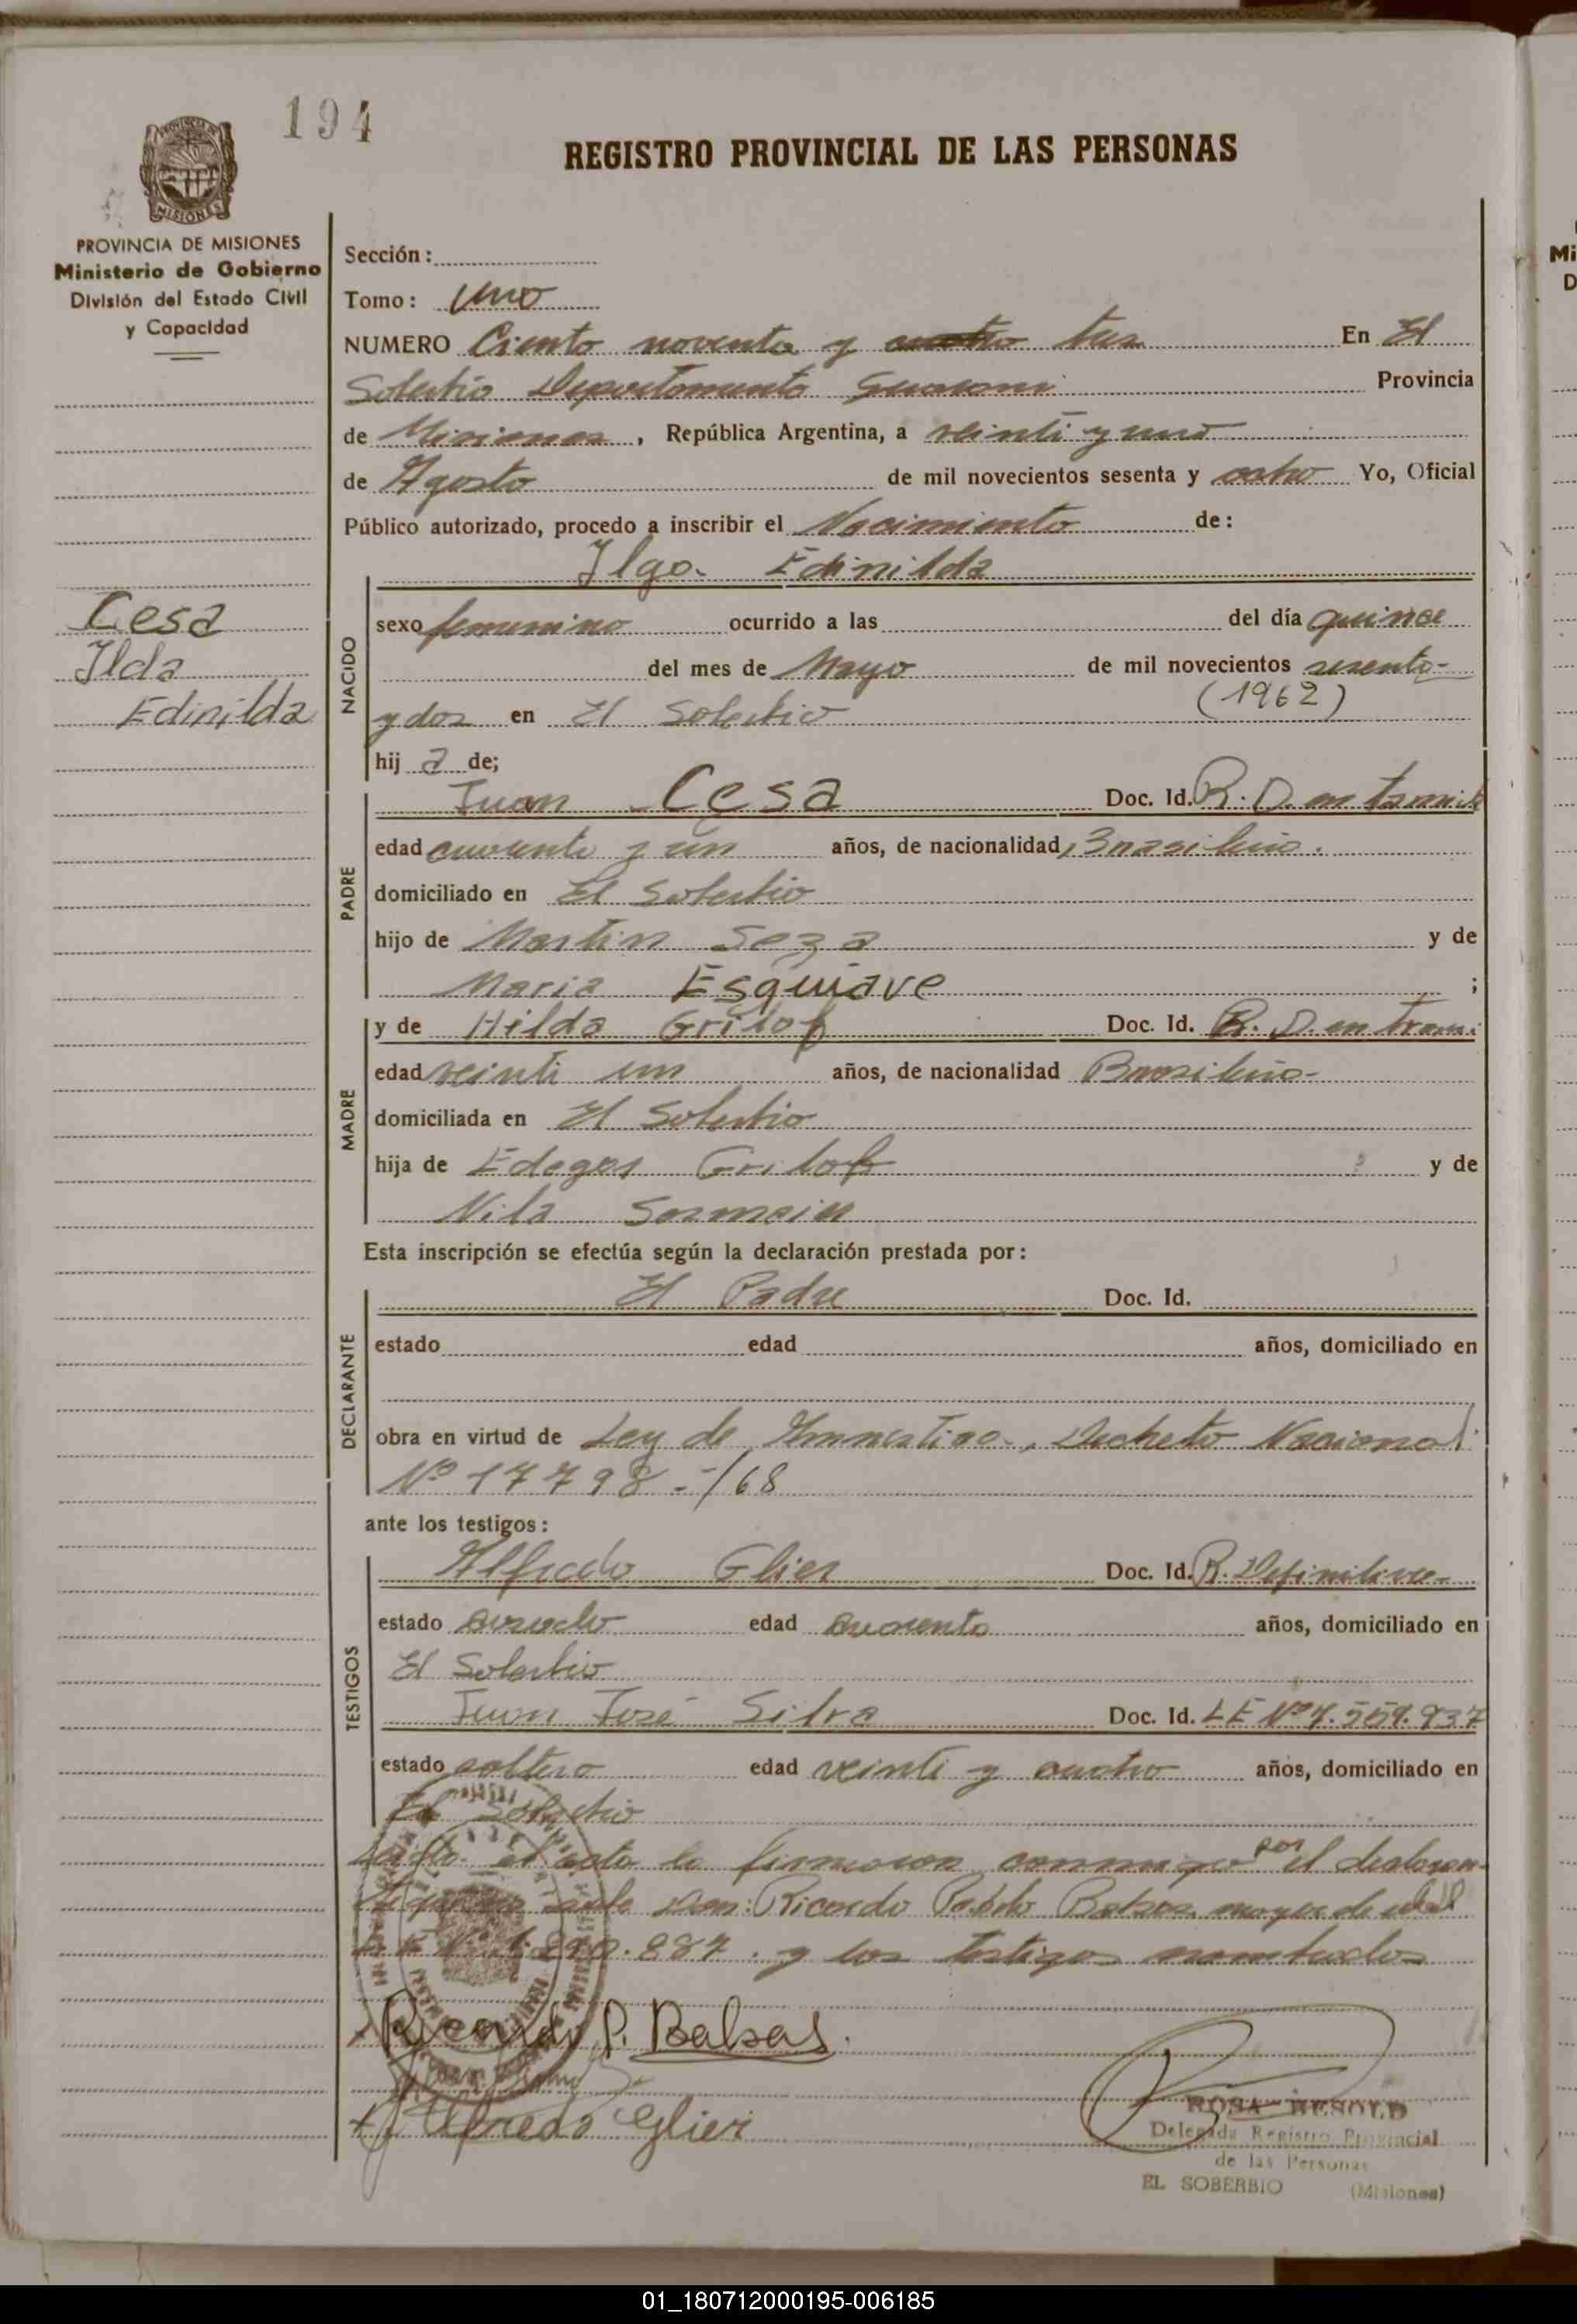 194
REGISTRO PROVINCIAL DE LAS PERSONAS
PROVINCIA DE MISIONES
Ministerio de Gobierno
División del Estado Civil
y Capacidad
Sección:
Tomo: Uno
NUMERO Ciento noventa y cuatro tres En El
Soberbio Departamento Guarani Provincia
de Misiones, República Argentina, a veinti y uno
de Agosto de mil novecientos sesenta y ocho Yo, Oficial
Público autorizado, procedo a inscribir el Nacimiento de:
Edinilda
Cesa
Ilda
Edinilda
NACIDO
sexo femenino ocurrido a las del día quince
del mes de Mayo de mil novecientos sesenta-
(1962)
y dos en El Soberbio
hij a de;
PADRE
Juan Cesa Doc. Id. R. D. en tramite
edad cuarenta y un años, de nacionalidad, Brasileño.
domiciliado en El Soberbio
hijo de Martin Seza y de
Maria Esquiave ;
MADRE
y de Hilda Doc. Id. R. D. en tram.
edad veinti un años, de nacionalidad Brasileña-
domiciliada en El Soberbio
hija de y de
Nila
Esta inscripción se efectúa según la declaración prestada por:
DECLARANTE
El Padre Doc. Id.
estado edad años, domiciliado en
obra en virtud de Ley de Nacional
Nº 17798-/68
ante los testigos:
TESTIGOS
Alfredo Glier Doc. Id. R. Definitiva-
estado casado edad cuarenta años, domiciliado en
El Soberbio
Juan José Silva Doc. Id. LE Nº 7.559.937
estado soltero edad veinti y cuatro años, domiciliado en
El Soberbio
el acta la firmaron conmigo por el declaran-
Don: Ricardo Pablo Balsas mayor de edad
.887. y los testigos nombrados
Ricardo P. Balsas.
Alfredo Glier
ROSA BESOLD
Delegada Registro Provincial
de las Personas
EL SOBERBIO (Misiones)
01_180712000195-006185